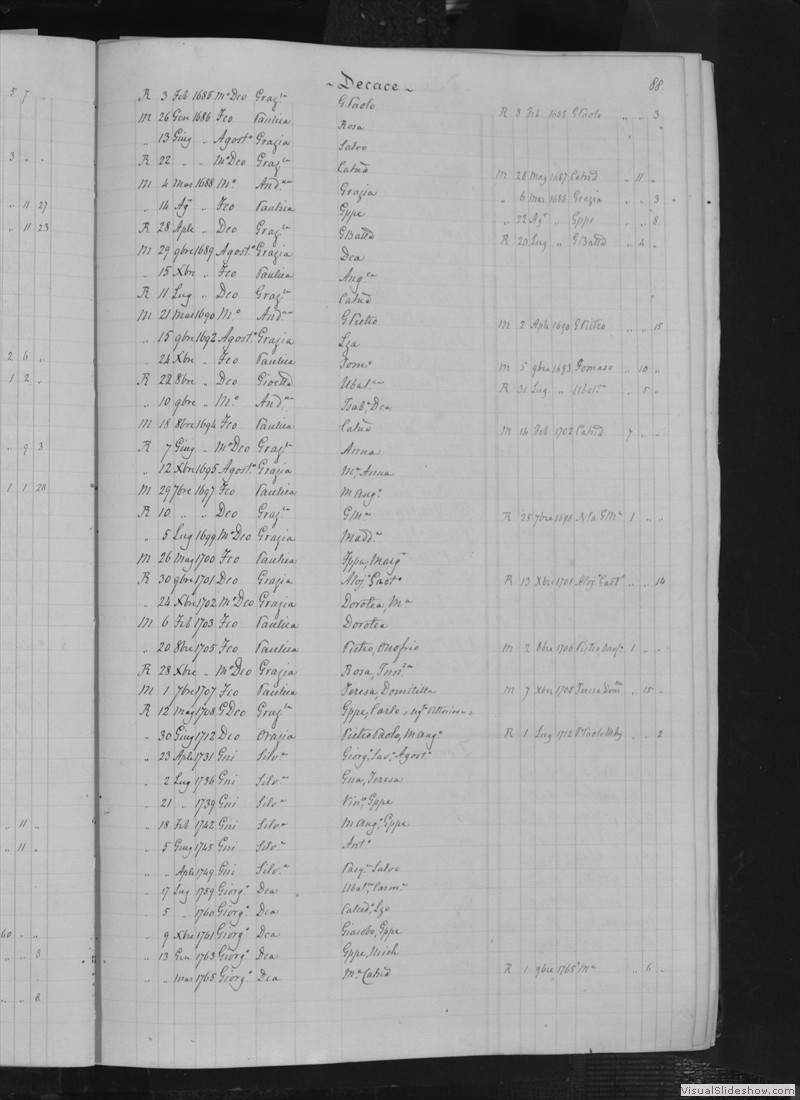 5 7 "
3 " "
" 11 27
" 11 23
2 6 "
1 2 "
" 9 3
1 1 28
" 11 "
" 11 "
60 " "
" " 8
" " 8
~ Decace ~ 88.
R 3 Feb 1685 Mº Deo Grazⁿ G Paolo R 3 Feb 1685 G Paolo " " 3
M 26 Gen 1686 Fco Paulica Rosa
" 13 Giug " Agostº Grazia Salvo
R 22 " " Mº Deo Grazⁿ Catnā M 28 Mag 1687 Catnā " 11 "
M 4 Mar 1688 Mº And Grazia " 6 Mar 1688 Grazia " " 3
" 14 Agº " Fco Paulica Gppe " 22 Agº " Gppe " " 8
R 28 Aple " Deo Grazⁿ GBattā R 20 Lug " GBattā " 4 "
M 29 9bre 1689 Agostº Grazia Dea
" 15 Xbre " Fco Paulica Angᶜᵃ
R 11 Lug " Deo Grazⁿ Catnā
M 21 Mar 1690 Mº And G Pietro M 2 Aple 1690 G Pietro " " 15
" 15 9bre 1692 Agostº Grazia Lza
" 24 Xbre " Fco Paulica Tomº M 5 9bre 1693 Tomaso " 10 "
R 22 8bre " Deo Gioettā Ubal R 31 Lug " Ubal " 5 "
" 10 9bre " Mº And Isabª, Dea
M 18 8bre 1694 Fco Paulica Catnā M 14 Feb 1702 Catnā 7 " "
R 7 Giug " Mº Deo Grazⁿ Anna
" 12 Xbre 1695 Agostº Grazia Mª Anna
M 29 7bre 1697 Fco Paulica M Angª
R 10 " " Deo Grazⁿ G Mª R 25 7bre 1698 G Mª 1 " "
" 5 Lug 1699 Mº Deo Grazia Maddª
M 26 Mag 1700 Fco Paulica Fppa, Margª
R 30 9bre 1701 Deo Grazia Alojº Gaetº R 13 Xbre 1701 Alojº Gaetº " " 14
" 24 Xbre 1702 Mº Deo Grazia Dorotea, Mª
M 6 Feb 1703 Fco Paulica Dorotea
" 20 8bre 1705 Fco Paulica Pietro, Onofrio M 2 8bre 1706 Pietro, Onofº 1 " "
R 28 Xbre " Mº Deo Grazia Rosa, Inn
M 1 7bre 1707 Fco Paulica Teresa, Domitilla M 7 Xbre 1708 Teresa Dom " 15 "
R 12 Mag 1708 G Deo Grazⁿ Gppe, Carlo
" 30 Giug 1712 Deo Orazia Pietro Paolo, M Angº R 1 Lug 1712 P Paolo " " 2
" 23 Aple 1731 Gni Silvª Giorgº, Savº, Agostº
" 2 Lug 1736 Gni Silvª Gna, Teresa
" 21 " 1739 Gni Silvª Vinº, Gppe
" 18 Feb 1742 Gni Silvª M Angº, Gppe
" 5 Giug 1745 Gni Silvª Antº
" " Aple 1749 Gni Silvª Pasqº Salvo
" 17 Lug 1759 Giorgº Dea Ubalª, Carmª
" 5 " 1760 Giorgº Dea Calcedº, Lzo
" 9 Xbre 1761 Giorgº Dea Giacobo, Gppe
" 13 Gen 1763 Giorgº Dea Gppe, Mich
" " Mar 1765 Giorgº Dea Mª Catnā R 1 9bre 1765 Mª " 6 "
VisualSlideshow.com